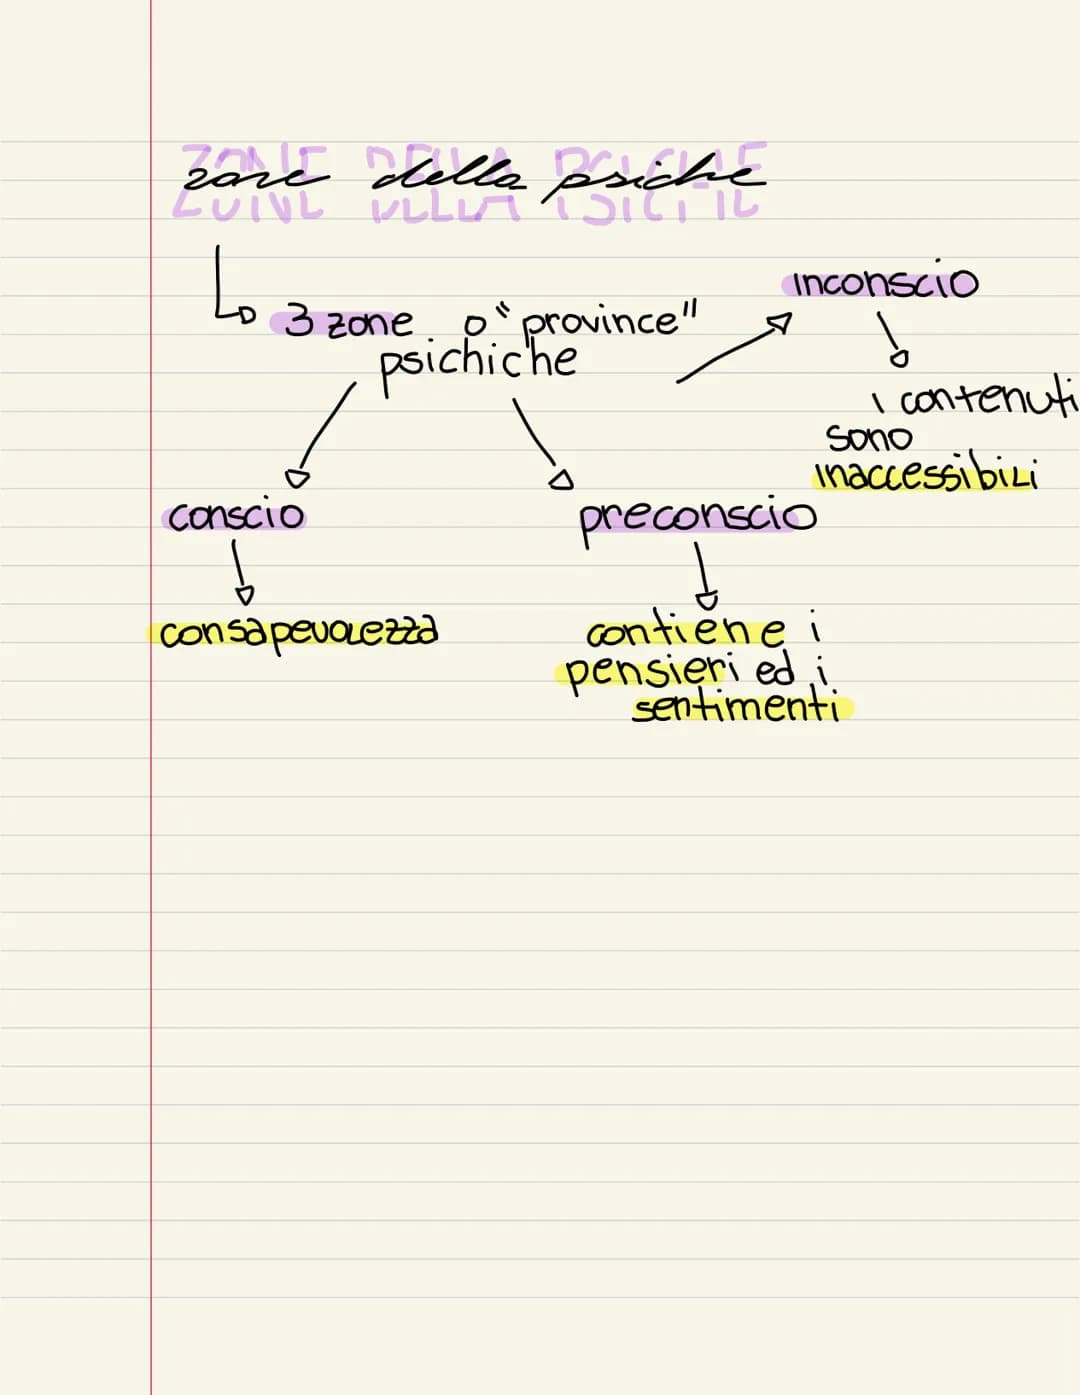 ZONE DELLA PSICHE
zone della psiche
3 zone o "province"
psichiche
inconscio
i contenuti
sono
inaccessibili
conscio
consapevolezza
preconscio
contiene i
pensieri ed i
sentimenti